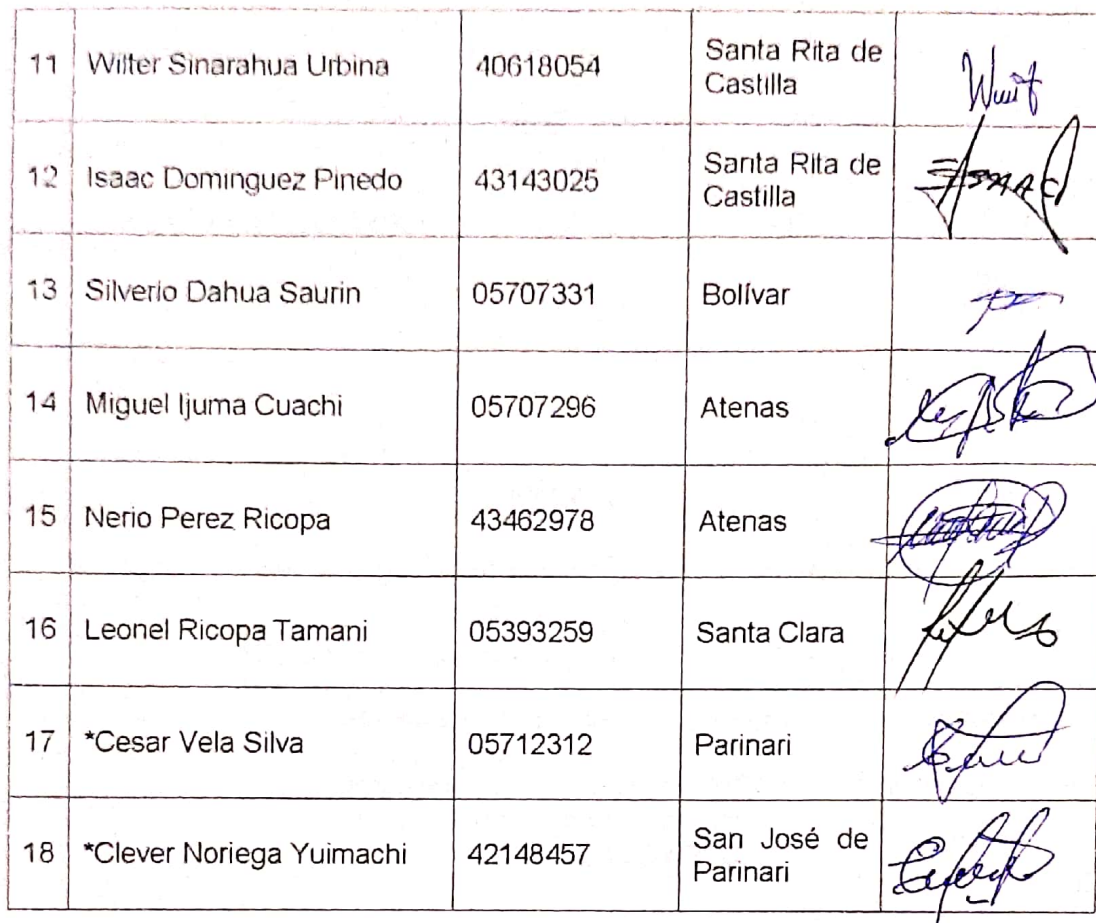 11 Wilter Sinarahua Urbina 40618054 Santa Rita de
Castilla
12 Isaac Dominguez Pinedo 43143025 Santa Rita de
Castilla
13 Silverio Dahua Saurin 05707331 Bolívar
14 Miguel Ijuma Cuachi 05707296 Atenas
15 Nerio Perez Ricopa 43462978 Atenas
16 Leonel Ricopa Tamani 05393259 Santa Clara
17 *Cesar Vela Silva 05712312 Parinari
18 *Clever Noriega Yuimachi 42148457 San José de
Parinari